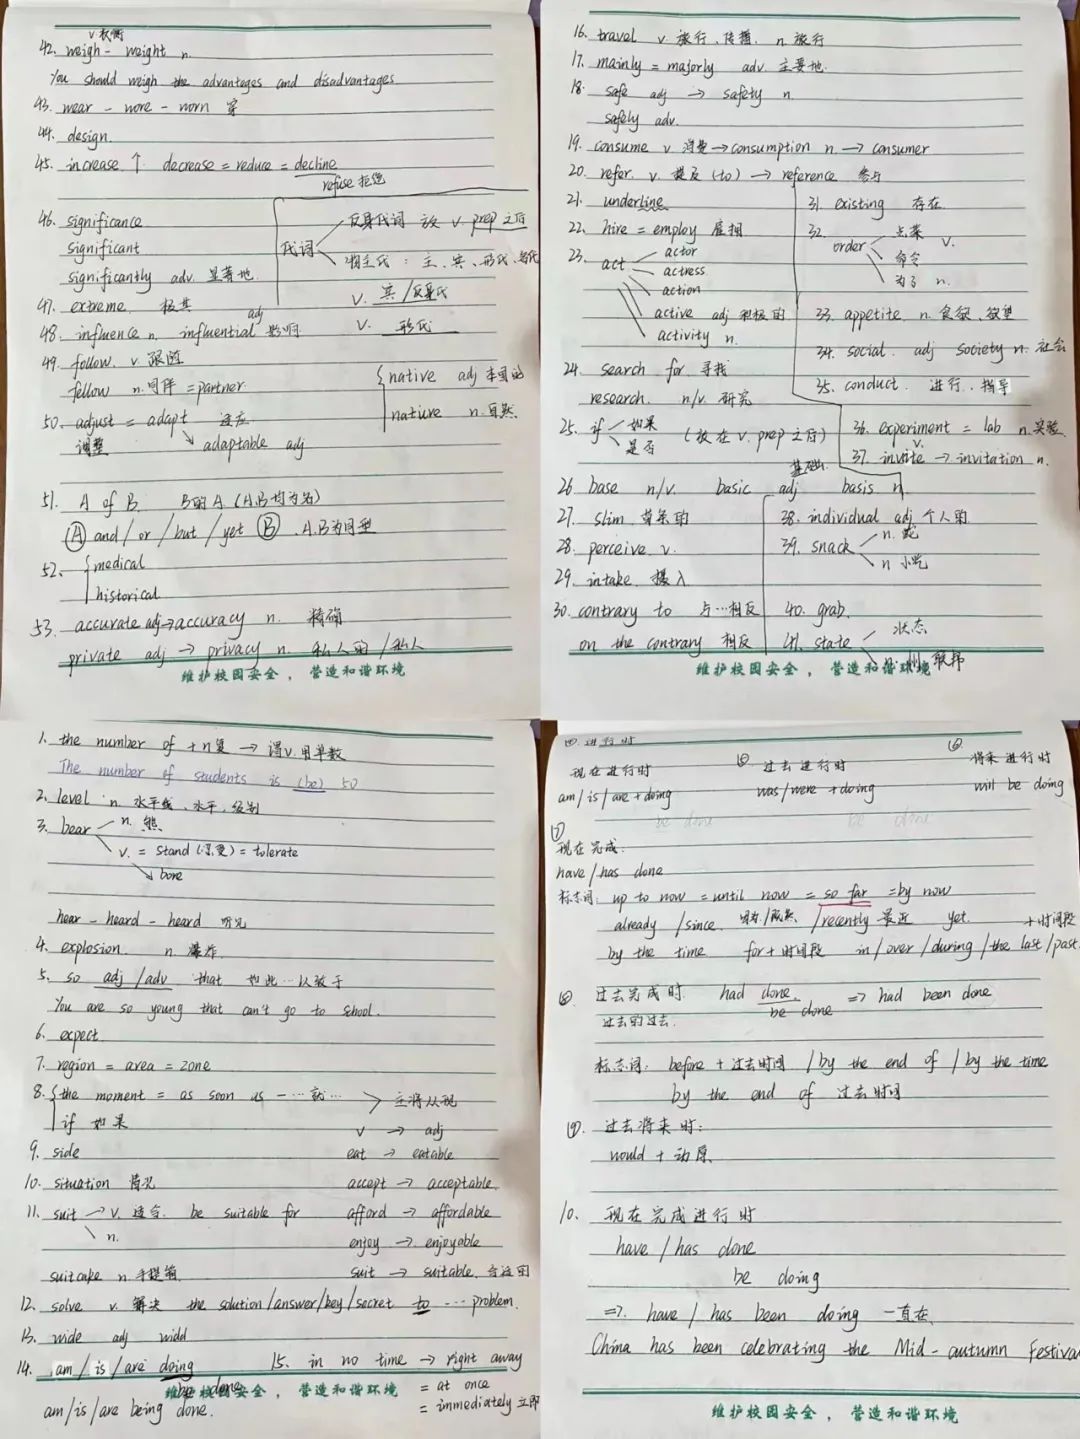 v 权衡
42. weigh - weight n.
You should weigh the advantages and disadvantages
43. wear - wore - worn 穿
44. design.
45. increase ↑ decrease = reduce = decline
refuse 拒绝
46. significance
significant
significantly adv. 显著地.
47. extreme. 极其
adj
48. influence n. influential 影响
49. follow. v. 跟随
fellow n. 同伴 = partner
50. adjust = adapt 适应
调整 adaptable adj
代词
反身代词 放 v. prep 之后
物主代: 主、宾、形代、名代
v. 宾/反身代
v. 形代
native adj 本国的
nature n. 自然
51. A of B. B的A (A.B均为名)
Ⓐ and / or / but / yet Ⓑ . A.B为同型
52. medical
historical
53. accurate adj → accuracy n. 精确
private adj → privacy n. 私人的 / 私人
维护校园安全，营造和谐环境
16. travel v 旅行、传播. n 旅行
17. mainly = majorly adv. 主要地.
18. safe adj → safety n
safely adv.
19. consume v 消费 → consumption n. → consumer
20. refer. v. 提及 (to) → reference 参与
21. underline
22. hire = employ 雇拥
23. act actor
actress
action
active adj 积极的
activity n.
24. search for 寻找
research. n/v. 研究
25. if 如果
是否 (放在 v. prep 之后)
26 base n/v. basic adj basis n 基础
27. slim 苗条的
28. perceive v.
29. intake 摄入
30. contrary to 与…相反
on the contrary 相反
31. existing 存在.
32. order 点菜 v.
命令
为了 n.
33. appetite n. 食欲、欲望
34. social. adj society n. 社会
35. conduct. 进行、指导
36. experiment = lab n. 实验
v.
37. invite → invitation n.
38. individual adj 个人的.
39. snack n. 蛇
n 小吃
40. grab.
41. state 状态
州 联邦
维护校园安全，营造和谐环境
1. the number of + n复 → 谓v. 用单数
The number of students is (be) 50
2. level n. 水平线、水平，级别
3. bear n. 熊
v. = stand (忍受) = tolerate
bore
hear - heard - heard 听见
4. explosion. n. 爆炸.
5. so adj / adv that 如此…以致于
You are so young that can't go to school.
6. expect.
7. region = area = zone
8. the moment = as soon as 一…就… 主将从现
if 如果
9. side
10. situation 情况
11. suit v. 适合. be suitable for
n.
suitcake n 手提箱
v → adj
eat → eatable
accept → acceptable
afford → affordable
enjoy → enjoyable
suit → suitable. 合适的
12. solve v. 解决 the solution / answer / key / secret to … problem.
13. wide adj widd
14. am / is / are doing
be done
am / is / are being done.
15. in no time → right away
= at once
= immediately 立即
维护校园安全，营造和谐环境
四. 进行时
现在进行时
am / is / are + doing
⑤ 过去进行时
was / were + doing
⑥ 将来进行时
will be doing
be done be done
⑦
现在完成:
have / has done
标志词: up to now = until now = so far = by now
already / since / recently 最近 yet. + 时间段
by the time for + 时间段 in / over / during / the last / past
⑧ 过去完成时. had done. => had been done
be done
过去的过去.
标志词: before + 过去时间 / by the end of / by the time
by the end of 过去时间
⑨. 过去将来时:
would + 动原.
10. 现在完成进行时
have / has done
be doing
=>. have / has been doing 一直在.
China has been celebrating the Mid - autumn Festival
维护校园安全，营造和谐环境